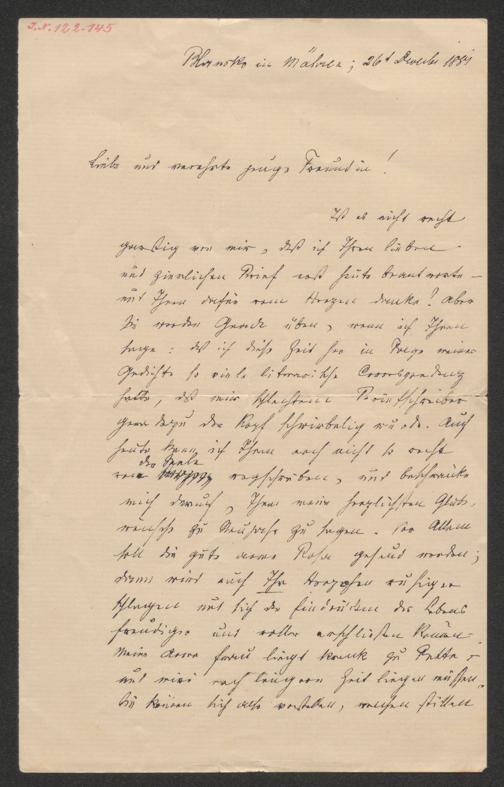 J.N. 122.145
Blansko in Mähren; 26t December 1881
Liebe und verehrte junge Freundin!
Ist es nicht recht
garstig von mir, daß ich Ihren lieben
und zierlichen Brief erst heute beantworte –
und Ihnen dafür vom Herzen danke! Aber
Sie werden Gnade üben, wenn ich Ihnen
sage: daß ich diese Zeit her in Folge meiner
Gedichte so viele literarische Correspondenz
hatte, daß mir schlechtem Briefschreiber
ganz dazu der Kopf schwirbelig wurde. Auch
heute kann ich Ihnen noch nicht so recht
der Seele
von wegschreiben, und beschränke
mich darauf, Ihnen meine herzlichsten Glück-
wünsche zu Neujahr zu sagen. Vor Allem
soll die gute arme Rosa gesund werden;
dann wird auch Ihr Herzchen ruhiger
schlagen und sich den Eindrücken des Lebens
freudiger und voller erschließen können.
Meine arme Frau liegt krank zu Bette –
und wird noch längere Zeit liegen müssen.
Sie können sich also vorstellen, welchen stillen